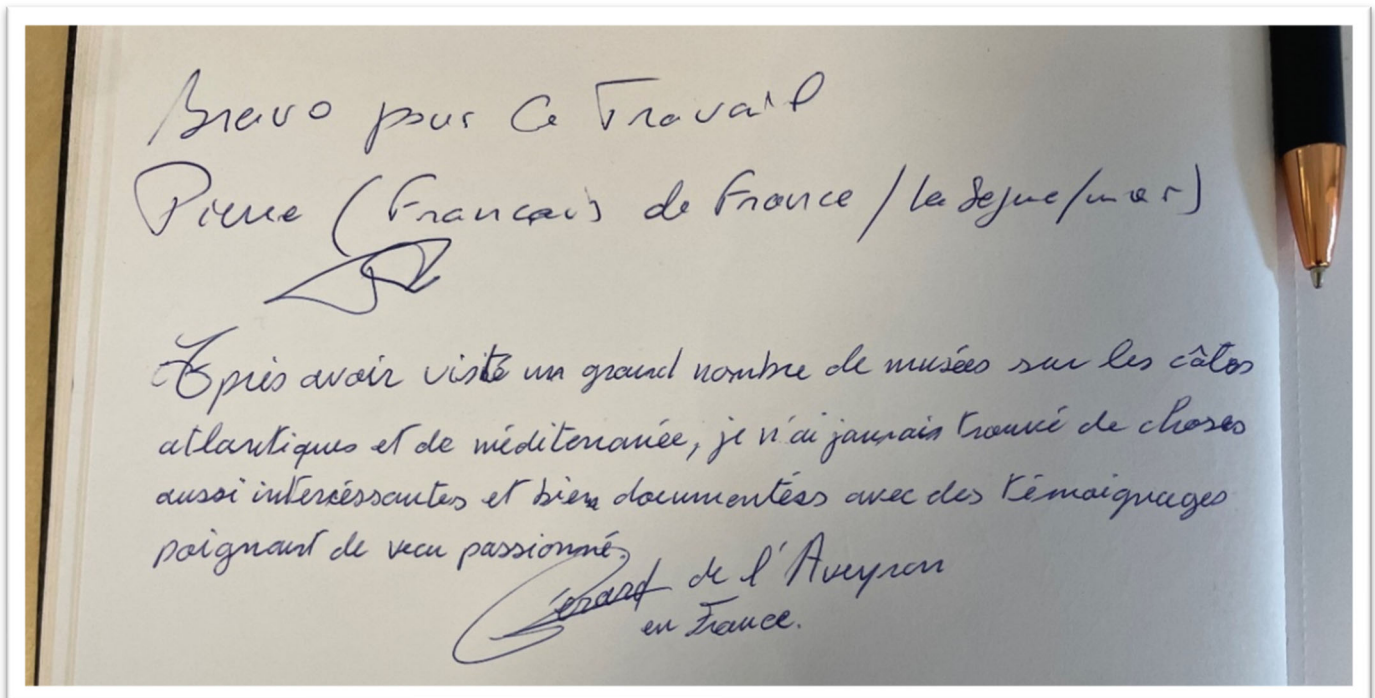 Bravo pour Ce Travail
Pierre (Français de France / la Seyne/mer)
Après avoir visité un grand nombre de musées sur les côtes
atlantiques et de méditerranée, je n'ai jamais trouvé de choses
aussi interéssantes et bien documentées avec des témoignages
poignant de vecu passionné.
Gérard de l'Aveyron
en France.